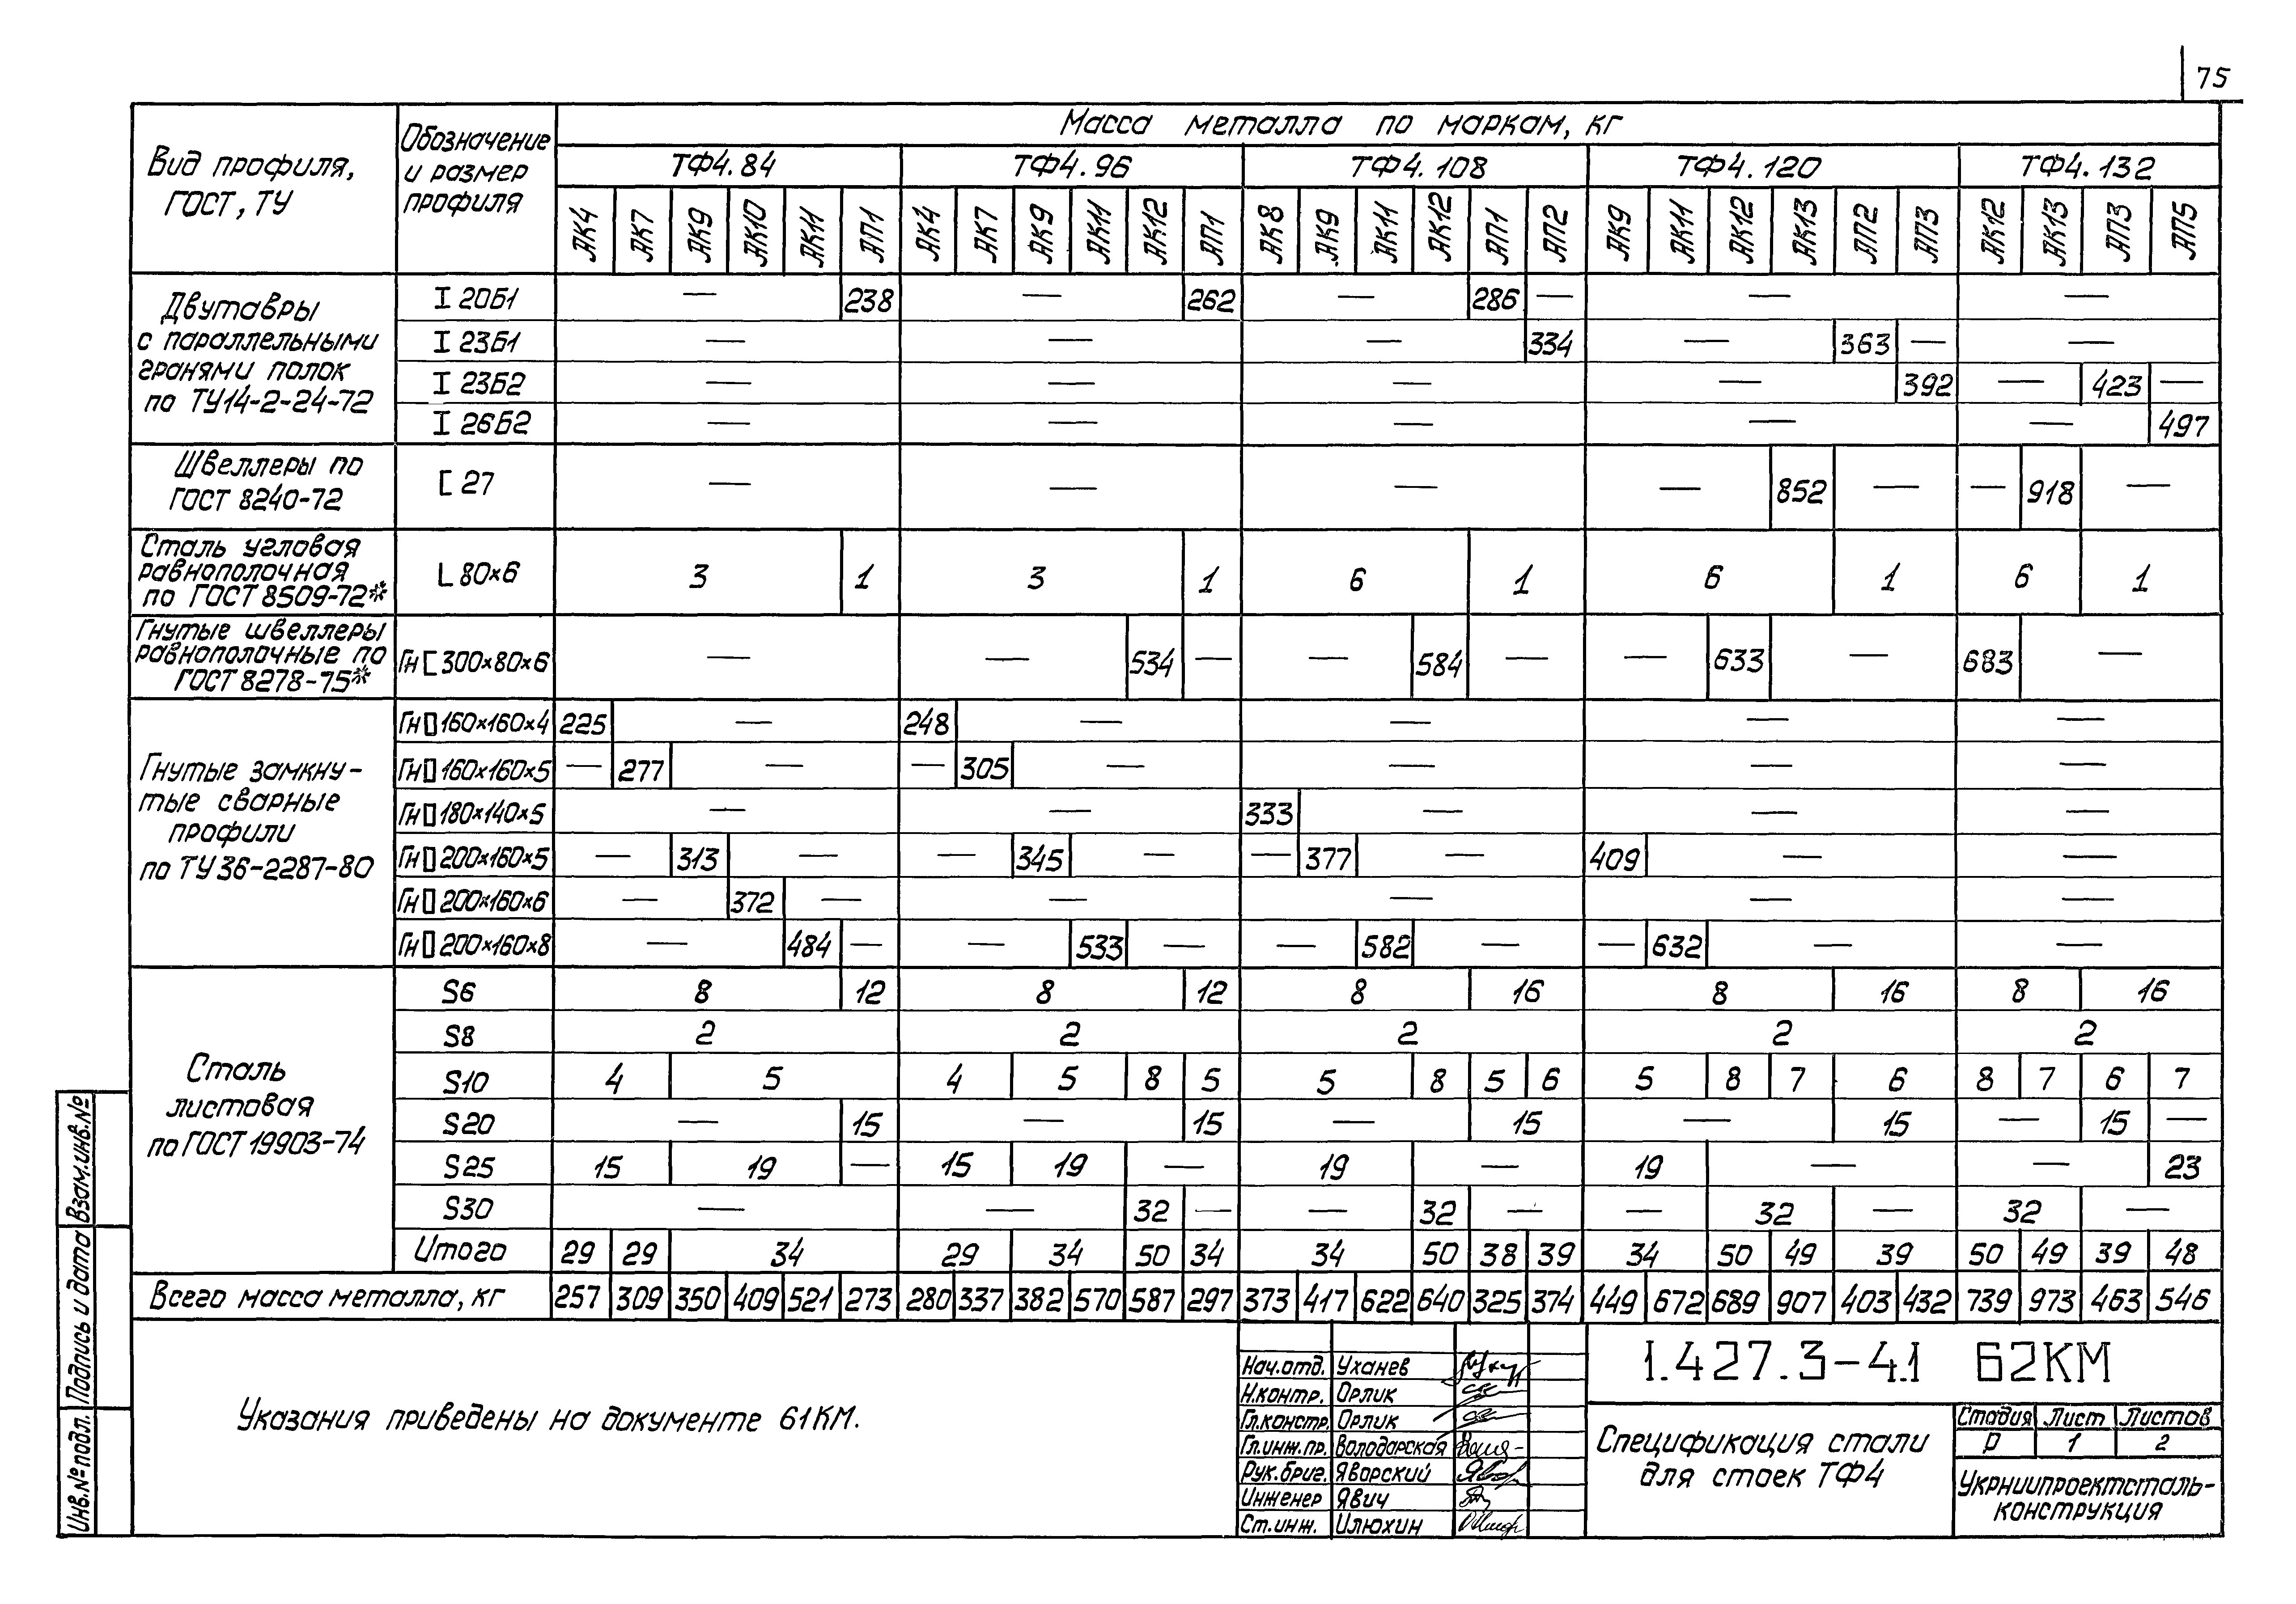 75
Масса металла по маркам, кг
Вид профиля, ГОСТ, ТУ
Обозначение и размер профиля
ТФ4.84 ТФ4.96 ТФ4.108 ТФ4.120 ТФ4.132
ЯК4 ЯК7 ЯК9 ЯК10 ЯК11 ЯП1 ЯК4 ЯК7 ЯК9 ЯК11 ЯК12 ЯП1 ЯК8 ЯК9 ЯК11 ЯК12 ЯП1 ЯП2 ЯК9 ЯК11 ЯК12 ЯК13 ЯП2 ЯП3 ЯК12 ЯК13 ЯП3 ЯП5
Двутавры
с параллельными
гранями полок
по ТУ14-2-24-72
I 20Б1 — 238 — 262 — 286 — — —
I 23Б1 — — — 334 — 363 — —
I 23Б2 — — — — 392 — 423 —
I 26Б2 — — — — — 497
Швеллеры по
ГОСТ 8240-72
[ 27 — — — — 852 — — 918 —
Сталь угловая
равнополочная
по ГОСТ 8509-72*
L 80×6 3 1 3 1 6 1 6 1 6 1
Гнутые швеллеры
равнополочные по
ГОСТ 8278-75*
Гн [ 300×80×6 — — 534 — — 584 — — 633 — 683 —
Гнутые замкну-
тые сварные
профили
по ТУ36-2287-80
Гн▯160×160×4 225 — 248 — — — —
Гн▯160×160×5 — 277 — — 305 — — — —
Гн▯180×140×5 — — 333 — — —
Гн▯200×160×5 — 313 — — 345 — — 377 — 409 — —
Гн▯200×160×6 — 372 — — — — —
Гн▯200×160×8 — 484 — — 533 — — 582 — — 632 — —
Сталь
листовая
по ГОСТ 19903-74
S6 8 12 8 12 8 16 8 16 8 16
S8 2 2 2 2 2
S10 4 5 4 5 8 5 5 8 5 6 5 8 7 6 8 7 6 7
S20 — 15 — 15 — 15 — 15 — 15 —
S25 15 19 — 15 19 — 19 — 19 — — 23
S30 — — 32 — — 32 — — 32 — 32 —
Итого 29 29 34 29 34 50 34 34 50 38 39 34 50 49 39 50 49 39 48
Всего масса металла, кг 257 309 350 409 521 273 280 337 382 570 587 297 373 417 622 640 325 374 449 672 689 907 403 432 739 973 463 546
Указания приведены на документе 61КМ.
Нач.отд. Уханев
Н.контр. Орлик
Гл.констр. Орлик
Гл.инж.пр. Володарская
Рук.бриг. Яворский
Инженер Явич
Ст.инж. Илюхин
1.427.3-4.1 62КМ
Спецификация стали
для стоек ТФ4
Стадия Лист Листов
Р 1 2
Укрниипроектсталь-
конструкция
Взам.инв.№
Подпись и дата
Инв.№подл.